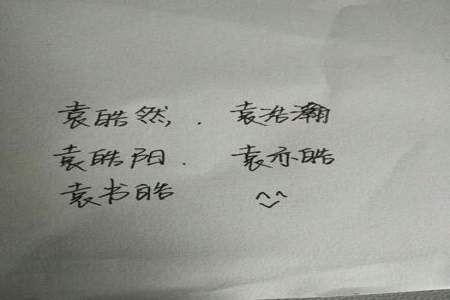 袁皓然，. 袁浩瀚
袁皓阳. 袁亦皓
袁书皓